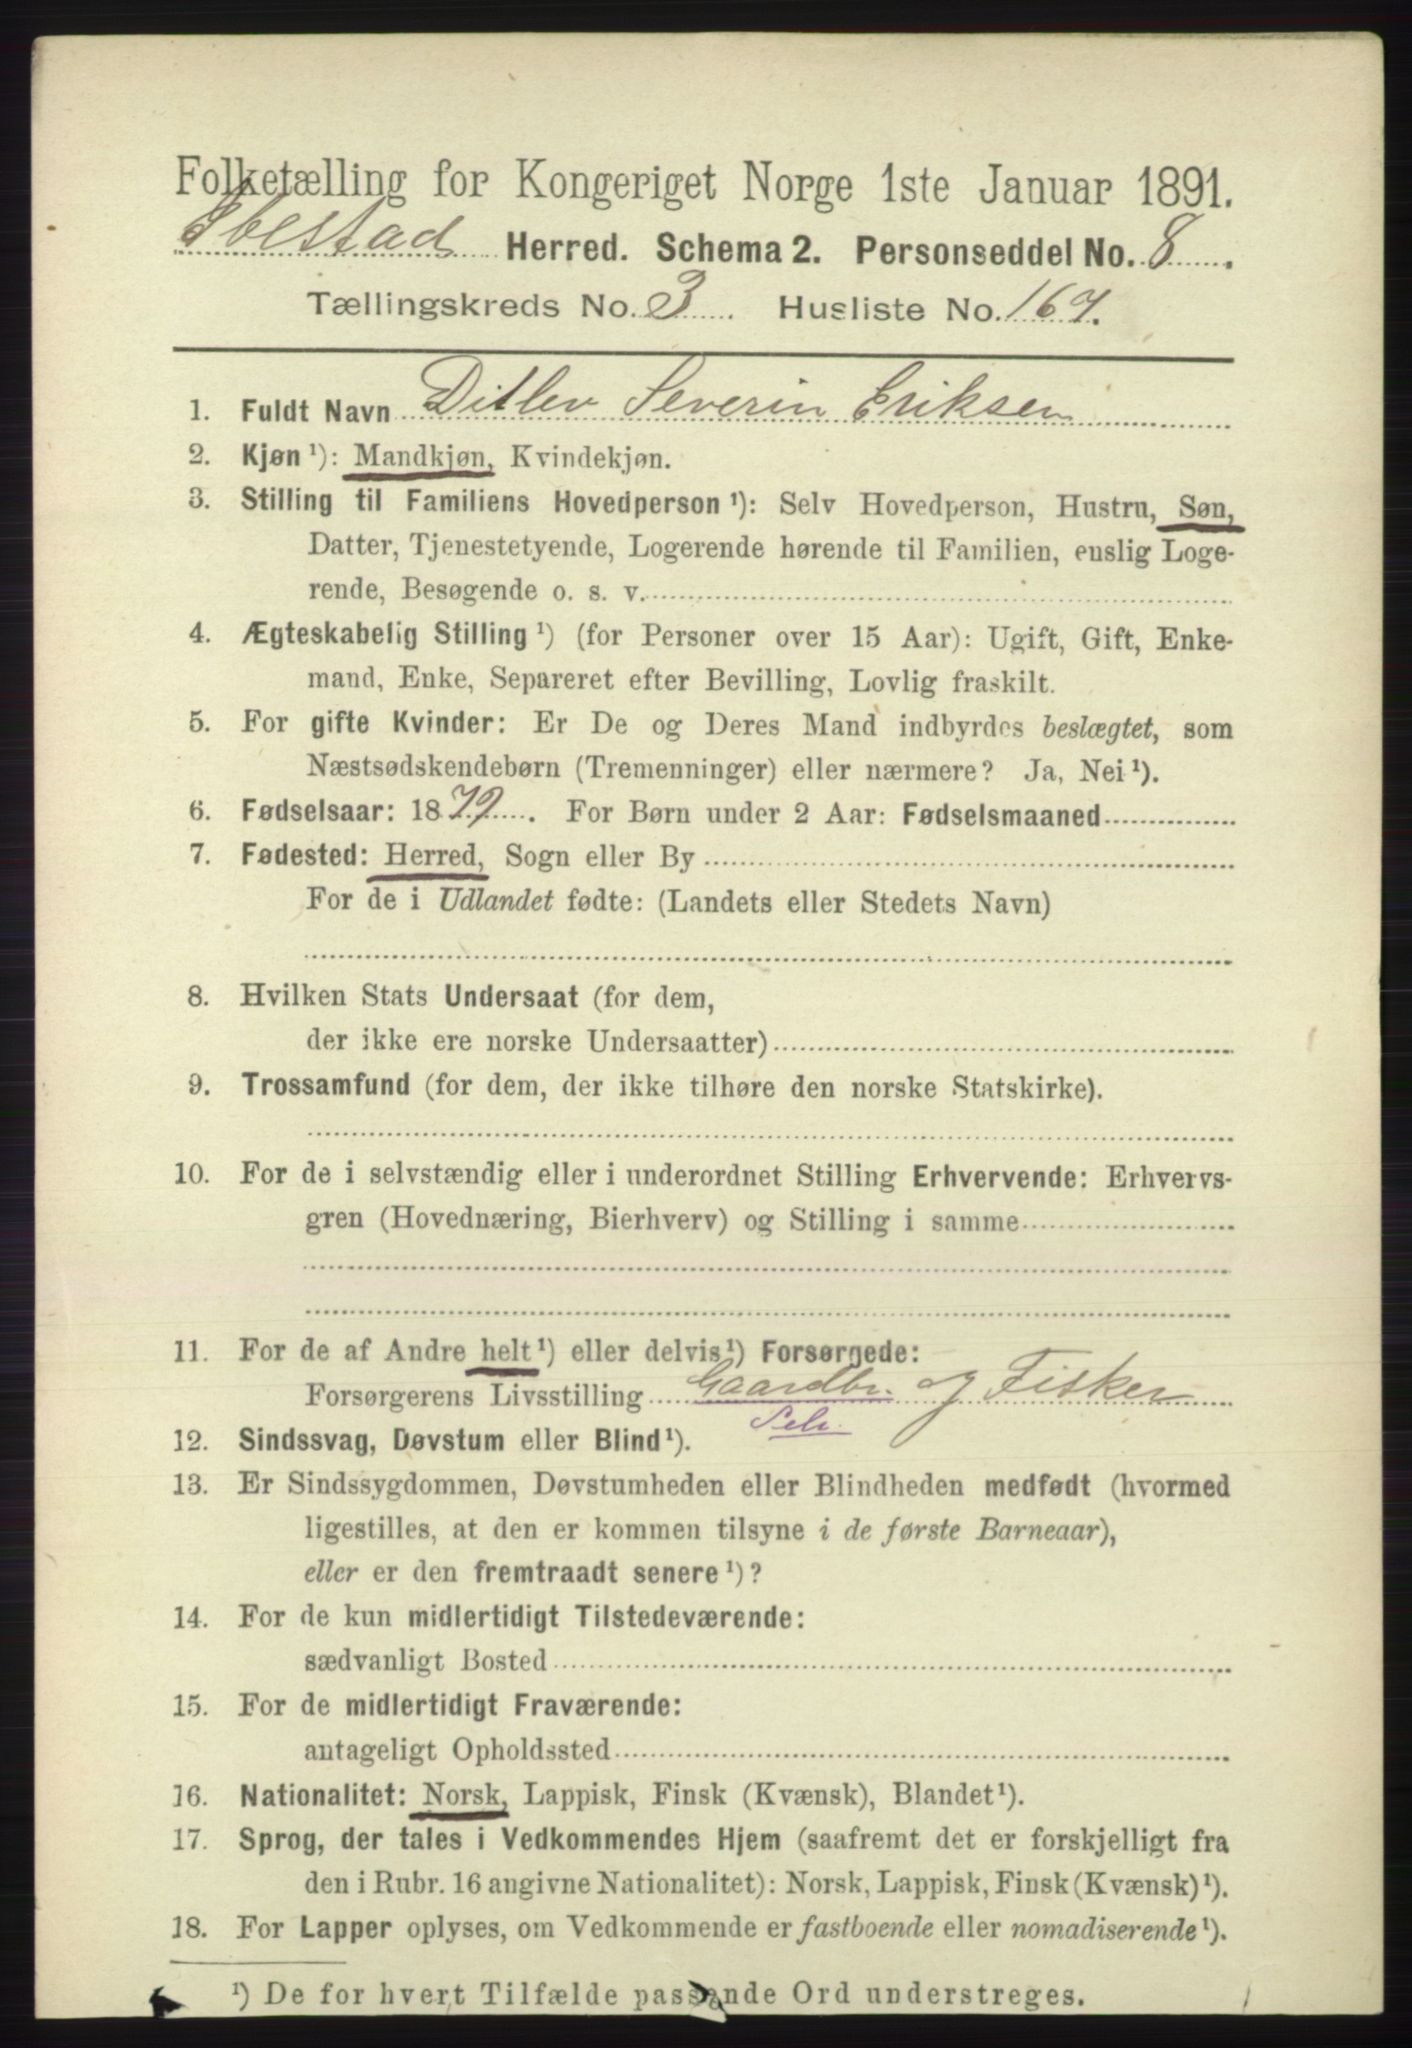 Folketælling for Kongeriget Norge 1ste Januar 1891.
Ibestad Herred. Schema 2. Personseddel No. 8.
Tællingskreds No. 3. Husliste No. 167.
1. Fuldt Navn Ditlev Severin Eriksen
2. Kjøn¹): Mandkjøn, Kvindekjøn.
3. Stilling til Familiens Hovedperson¹): Selv Hovedperson, Hustru, Søn,
Datter, Tjenestetyende, Logerende hørende til Familien, enslig Loge-
rende, Besøgende o. s. v.
4. Ægteskabelig Stilling¹) (for Personer over 15 Aar): Ugift, Gift, Enke-
mand, Enke, Separeret efter Bevilling, Lovlig fraskilt.
5. For gifte Kvinder: Er De og Deres Mand indbyrdes beslægtet, som
Næstsødskendebørn (Tremenninger) eller nærmere? Ja, Nei¹).
6. Fødselsaar: 1879. For Børn under 2 Aar: Fødselsmaaned
7. Fødested: Herred, Sogn eller By
For de i Udlandet fødte: (Landets eller Stedets Navn)
8. Hvilken Stats Undersaat (for dem,
der ikke ere norske Undersaatter)
9. Trossamfund (for dem, der ikke tilhøre den norske Statskirke).
10. For de i selvstændig eller i underordnet Stilling Erhvervende: Erhvervs-
gren (Hovednæring, Bierhverv) og Stilling i samme
11. For de af Andre helt¹) eller delvis¹) Forsørgede:
Forsørgerens Livsstilling Gaardbr. og Fisker
Selv.
12. Sindssvag, Døvstum eller Blind¹).
13. Er Sindssygdommen, Døvstumheden eller Blindheden medfødt (hvormed
ligestilles, at den er kommen tilsyne i de første Barneaar),
eller er den fremtraadt senere¹)?
14. For de kun midlertidigt Tilstedeværende:
sædvanligt Bosted
15. For de midlertidigt Fraværende:
antageligt Opholdssted
16. Nationalitet: Norsk, Lappisk, Finsk (Kvænsk), Blandet¹).
17. Sprog, der tales i Vedkommendes Hjem (saafremt det er forskjelligt fra
den i Rubr. 16 angivne Nationalitet): Norsk, Lappisk, Finsk (Kvænsk)¹).
18. For Lapper oplyses, om Vedkommende er fastboende eller nomadiserende¹).
¹) De for hvert Tilfælde passende Ord understreges.